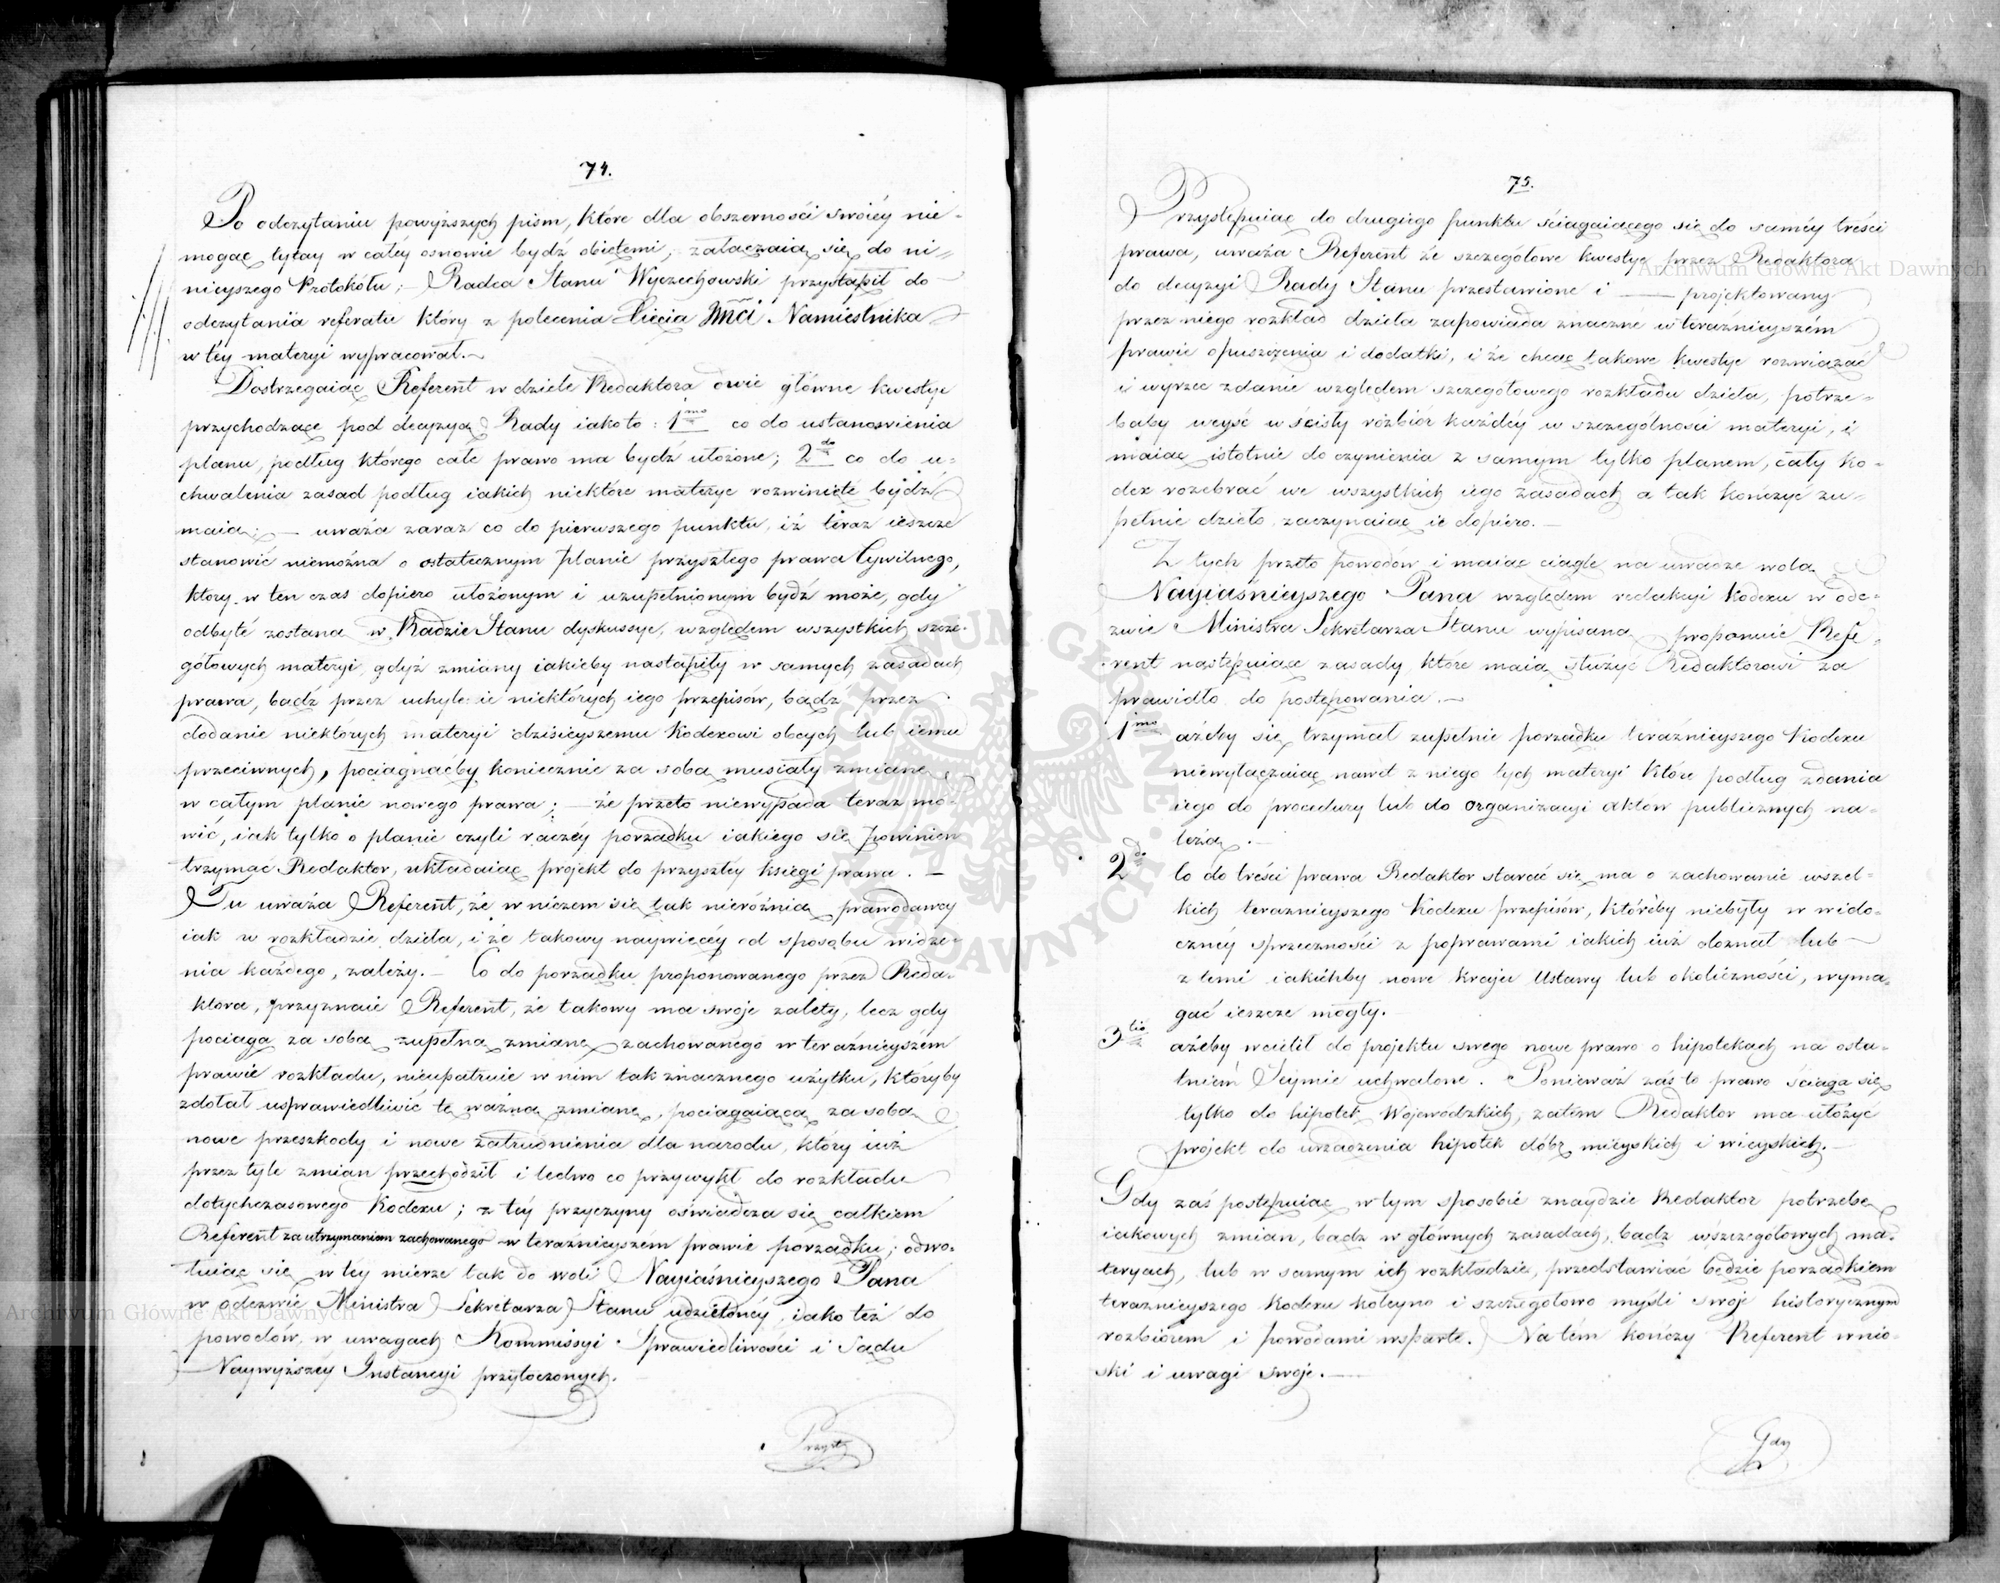 74.
Po odczytaniu powyższych pism, które dla obszerności swoiéy nie-
mogąc tytay w całéy osnowie bydź obiętemi, załączaią się do ni-
nieyszego Protokółu; – Radca Stanu Wyczechowski przystąpił do
odczytania referatu który z polecenia Xięcia Jmci Namiestnika
w téy materyi wypracował. –
Dostrzegaiąc Referent w dziele Redaktora dwie główne kwestye
przychodzące pod decyzyą Rady iako to: 1mo co do ustanowienia
planu, podług którego całe prawo ma bydź ułożone; 2do co do u-
chwalenia zasad podług iakich niektóre materye rozwinięte bydź
maią; – uważa zaraz co do pierwszego punktu, iż teraz ieszcze
stanowić niemożna o ostatecznym planie przyszłego prawa Cywilnego,
który w ten czas dopiero ułożonym i uzupełnionym bydź może, gdy
odbyte zostaną w Radzie Stanu dyskussye, względem wszystkich szcze-
gółowych materyi, gdyż zmiany iakieby nastąpiły w samych zasadach
prawa, bądź przez uchyle ie niektórych iego przepisów, bądź przez
dodanie niektórych materyi dzisieyszemu Kodexowi obcych lub iemu
przeciwnych, pociągnąćby koniecznie za sobą musiały zmianę
w całym planie nowego prawa; – że przeto niewypada teraz mó-
wić, iak tylko o planie czyli raczéy porządku iakiego się powinien
trzymać Redaktor, układaiąc projekt do przyszłéy księgi prawa. –
Tu uważa Referent, że w niczem się tak nieróżnią prawodawcy
iak w rozkładzie dzieła, i że takowy naywięcéy od sposobu widze-
nia każdego, zależy. – Co do porządku proponowanego przez Reda-
ktora, przyznaie Referent, że takowy ma swoje zalety, lecz gdy
pociąga za sobą zupełną zmianę zachowanego w teraźnieyszém
prawie rozkładu, nieupatruie w nim tak znacznego użytku, któryby
zdołał usprawiedliwić tę ważną zmianę, pociągaiącą za sobą
nowe przeszkody i nowe zatrudnienia dla narodu, który iuż
przez tyle zmian przechodził i ledwo co przywykł do rozkładu
dotychczasowego Kodexu; z téy przyczyny oświadcza się całkiem
Referent za utrzymaniem zachowanego w teraźnieyszém prawie porządku; odwo-
łuiąc się w téy mierze tak do woli Nayiaśnieyszego Pana
w odezwie Ministra Sekretarza Stanu udzielonéy, iako też do
powodów w uwagach Kommissyi Sprawiedliwości i Sądu
Naywyższéy Instancyi przytoczonych.
Przystę
75.
Przystępuiąc do drugiego punktu ściągaiącego się do saméy treści
prawa, uważa Referent że szczegółowe kwestye przez Redaktora
do decyzyi Rady Stanu przestawione i — projektowany
przez niego rozkład dzieła zapowiada znaczne w teraznieyszém
prawie opuszczenia i dodatki, i że chcąc takowe kwestye rozwiązać
i wyrzec zdanie względem szczegółowego rozkładu dzieła, potrze-
baby weyść w ścisły rozbiór każdéy w szczególności materyi, i
maiąc istotnie do czynienia z samym tylko planem, cały ko-
dex rozebrać we wszystkich iego zasadach a tak kończyć zu-
pełnie dzieło, zaczynaiąc ie dopiero. –
Z tych przeto powodów i maiąc ciągle na uwadze wolą
Nayiaśnieyszego Pana względem redakcyi Kodexu w ode-
zwie Ministra Sekretarza Stanu wypisaną proponuie Refe-
rent następuiące zasady które maią służyć Redaktorowi za
prawidło do postępowania. –
1mo ażeby się trzymał zupełnie porządku teraźnieyszego Kodexu
niewyłączaiąc nawet z niego tych materyi które podług zdania
iego do procedury lub do organizacyi aktów publicznych na-
leżą. –
2do Co do treści prawa Redaktor starać się ma o zachowanie wszel-
kich teraznieyszego Kodexu przepisów, któréby niebyły w wido-
cznéy sprzeczności z poprawami iakich iuż doznał lub
z temi iakichby nowe kraju Ustawy lub okoliczności, wyma-
gać ieszcze mogły. –
3tio ażeby wcielił do projektu swego nowe prawo o hipotekach na osta-
tniém Seymie uchwalone. Ponieważ zaś to prawo ściąga się
tylko do hipotek Wojewodzkich, zatém Redaktor ma ułożyć
projekt do urządzenia hipotek dóbr mieyskich i wieyskich. –
Gdy zaś postępuiąc w tym sposobie znaydzie Redaktor potrzebę
iakowych zmian, bądz w głównych zasadach, bądz w szczegółowych ma-
teryach, lub w samym ich rozkładzie, przedstawiać będzie porządkiem
teraznieyszego Kodexu koleyno i szczegółowo myśli swoje historycznym
rozbiorem i powodami wsparte. Na tém kończy Referent wnio-
ski i uwagi swoje. –
Gdy